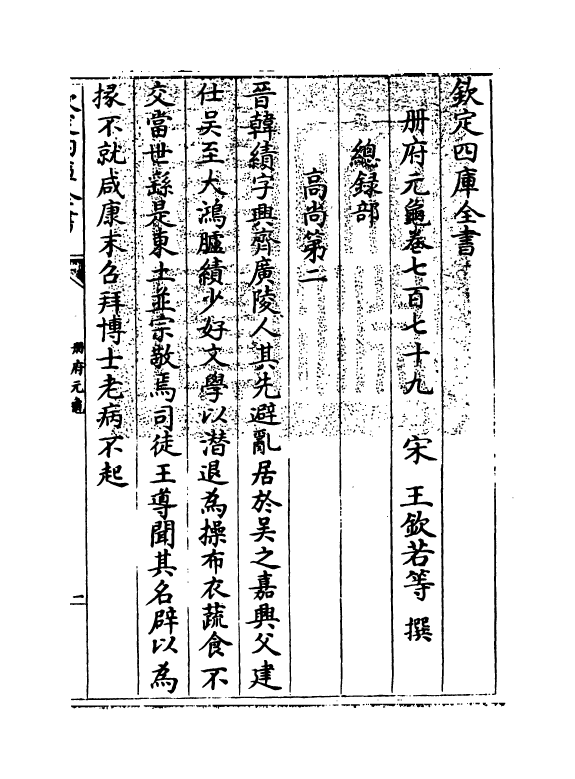 欽定四庫全書
册府元龜卷七百七十九　宋　王欽若等　撰
總録部
高尚第二
晉韓績字興齊廣陵人其先避亂居於吴之嘉興父建
仕吴至大鴻臚績少好文學以潛退為操布衣蔬食不
交當世繇是東土並宗敬焉司徒王導聞其名辟以為
掾不就咸康末召拜博士老病不起
欽定四庫全書
册府元龜
二